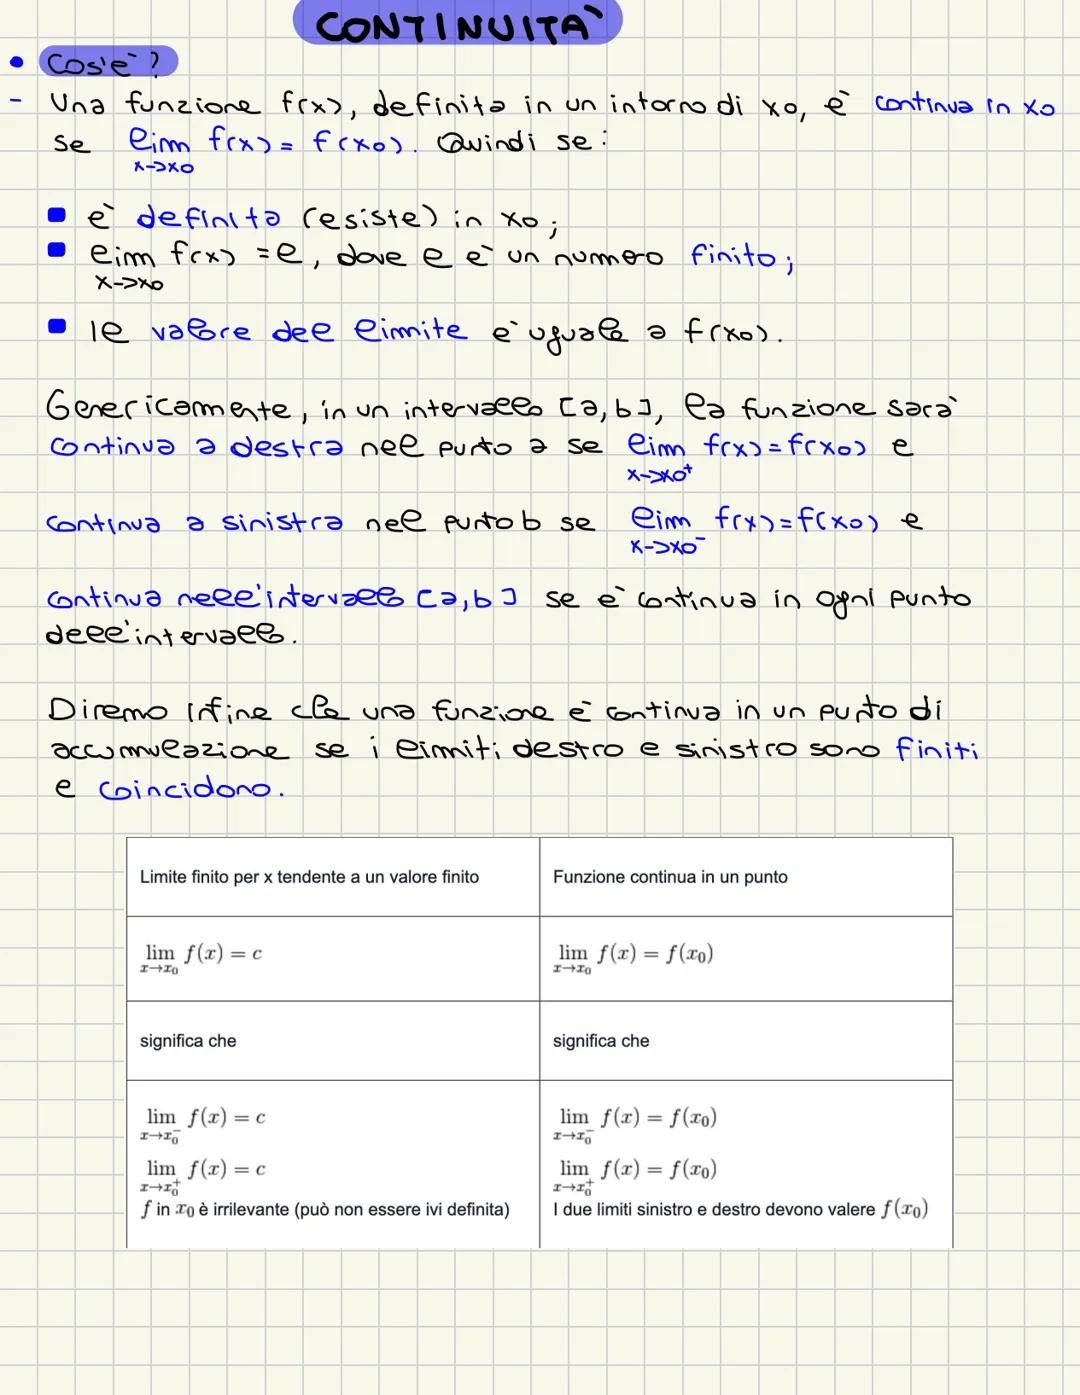 CONTINUITA'
• Cos'è?
- Una funzione f(x), definita in un intorno di x0, è continua in x0
se lim f(x) = f(x0). Quindi se:
x->x0
è definita (esiste) in x0;
lim f(x) = l, dove l è un numero finito;
x->x0
Il valore del limite è uguale a f(x0).
Genericamente, in un intervallo [a,b], la funzione sarà
continua a destra nel punto a se lim f(x)=f(x0) e
x->x0⁺
continua a sinistra nel punto b se lim f(x)=f(x0) e
x->x0⁻
continua nell'intervallo [a,b] se è continua in ogni punto
dell'intervallo.
Diremo infine che una funzione è continua in un punto di
accumulazione se i limiti destro e sinistro sono finiti
e coincidono.
Limite finito per x tendente a un valore finito
Funzione continua in un punto
lim f(x) = c
x→x₀
lim f(x) = f(x₀)
x→x₀
significa che
significa che
lim f(x) = c
x→x₀⁻
lim f(x) = c
x→x₀⁺
f in x₀ è irrilevante (può non essere ivi definita)
lim f(x) = f(x₀)
x→x₀⁻
lim f(x) = f(x₀)
x→x₀⁺
I due limiti sinistro e destro devono valere f(x₀)